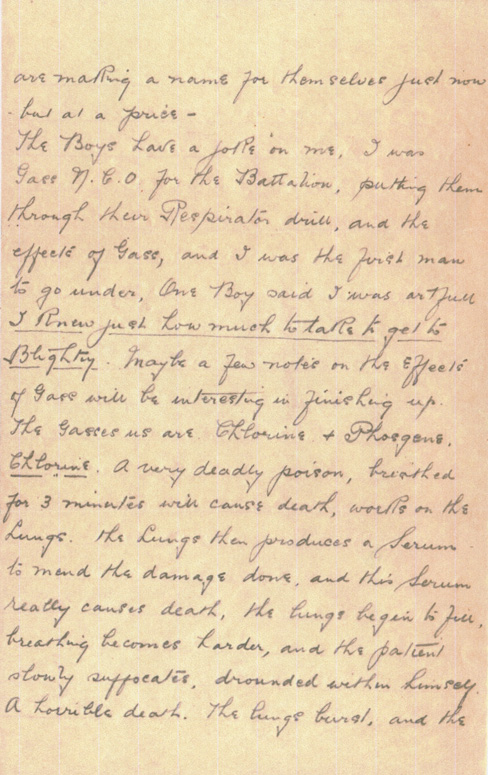 are making a name for themselves just now
but at a price -
The Boys have a joke on me, I was
Gass N.C.O. for the Battalion, putting them
through their Respirator drill, and the
effects of Gass, and I was the first man
to go under, One Boy said I was artfull
I Knew just how much to take to get to
Blighty. Maybe a few notes on the Effects
of Gass will be interesting in finishing up.
The Gasses us are Chlorine + Phosgene.
Chlorine. A very deadly poison, breathed
for 3 minutes will cause death, works on the
Lungs. The Lungs then produces a Serum
to mend the damage done, and this Serum
really causes death, the lungs begin to fill,
breathing becomes harder, and the patient
slowly suffocates, drounded within himself.
A horrible death. The lungs burst, and the